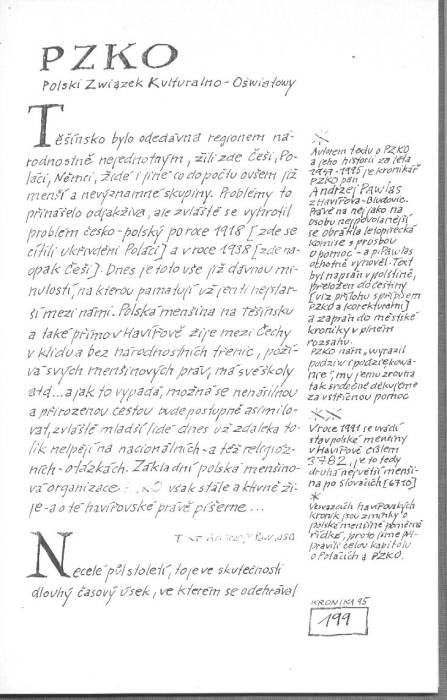 PZKO
Polski Związek Kulturalno-Oświatowy
Těšínsko bylo odedávna regionem ná-
rodnostně nejednotným, žili zde Češi, Po-
láci, Němci, Židé i jiné co do počtu ovšem již
menší a nevýznamné skupiny. Problémy to
přinášelo odjakživa, ale zvláště se vyhrotil
problém česko-polský po roce 1918 [zde se
cítili ukřivděni Poláci] a v roce 1938 [zde na-
opak Češi]. Dnes je toto vše již dávnou mi-
nulostí, na kterou pamatují už jen ti nejstar-
ší mezi námi. Polská menšina na těšínsku
a také přímo v Havířově žije mezi Čechy
v klidu a bez národnostních třenic, poží-
vá svých menšinových práv, má své školy
atd... a jak to vypadá, možná se nenásilnou
a přirozenou cestou bude postupně asimilo-
vat, zvláště mladší lidé dnes už zdaleka to-
lik nelpějí na nacionálních - a též religióz-
ních - otázkách. Základní polská menšino-
vá organizace PZKO však stále aktivně ži-
je - a o té havířovské právě píšeme...
Necelé půlstoletí, to je ve skutečnosti
dlouhý časový úsek, ve kterém se odehrával
*
Autorem textu o PZKO
a jeho historii za léta
1947-1995 je kronikář
PZKO pan
Andrzej Pawlas
z Havířova-Bludovic.
Právě na něj jako na
osobu nejpovolanější
se obrátila letopisecká
komise s prosbou
o pomoc - a p. Pawlas
ochotně vyhověl. Text
byl napsán v polštině,
přeložen do češtiny
[viz přílohu s přípisem
PZKO a korekturami]
a zapsán do městské
kroniky v plném
rozsahu.
PZKO nám vyjádřil
podziv s poděková-
ním, my jemu zrovna
tak srdečně děkujeme
za vstřícnou pomoc
**
V roce 1991 se uvádí
stav polské menšiny
v Havířově číslem
3782, je to tedy
druhá největší menši-
na po Slovácích [6710]
*
Ve svazcích havířovských
kronik jsou zmínky o
polské menšině poměrně
řídké, proto jsme při-
pravili celou kapitolu
o Polácích a PZKO.
KRONIKA 95
199